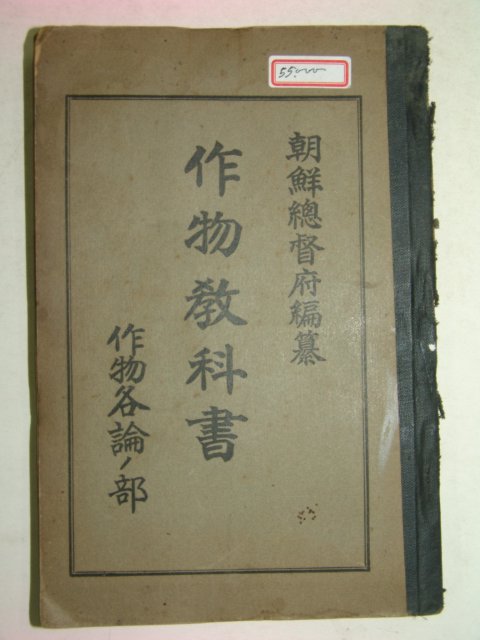 55,000
朝鮮總督府編纂
作物教科書
作物各論ノ部